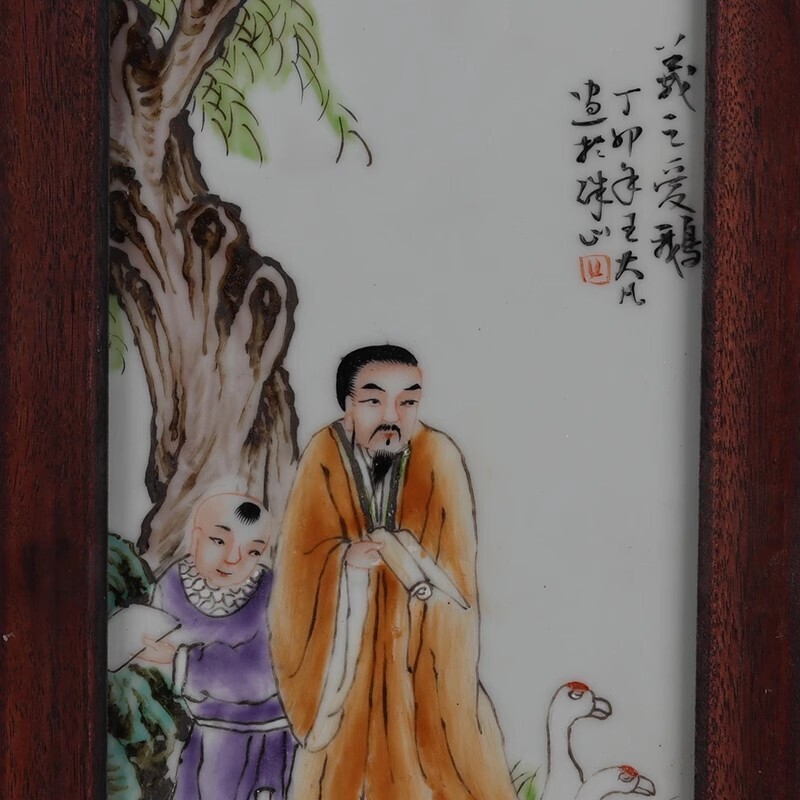 羲之爱鹅
丁卯年王大凡
写於珠山